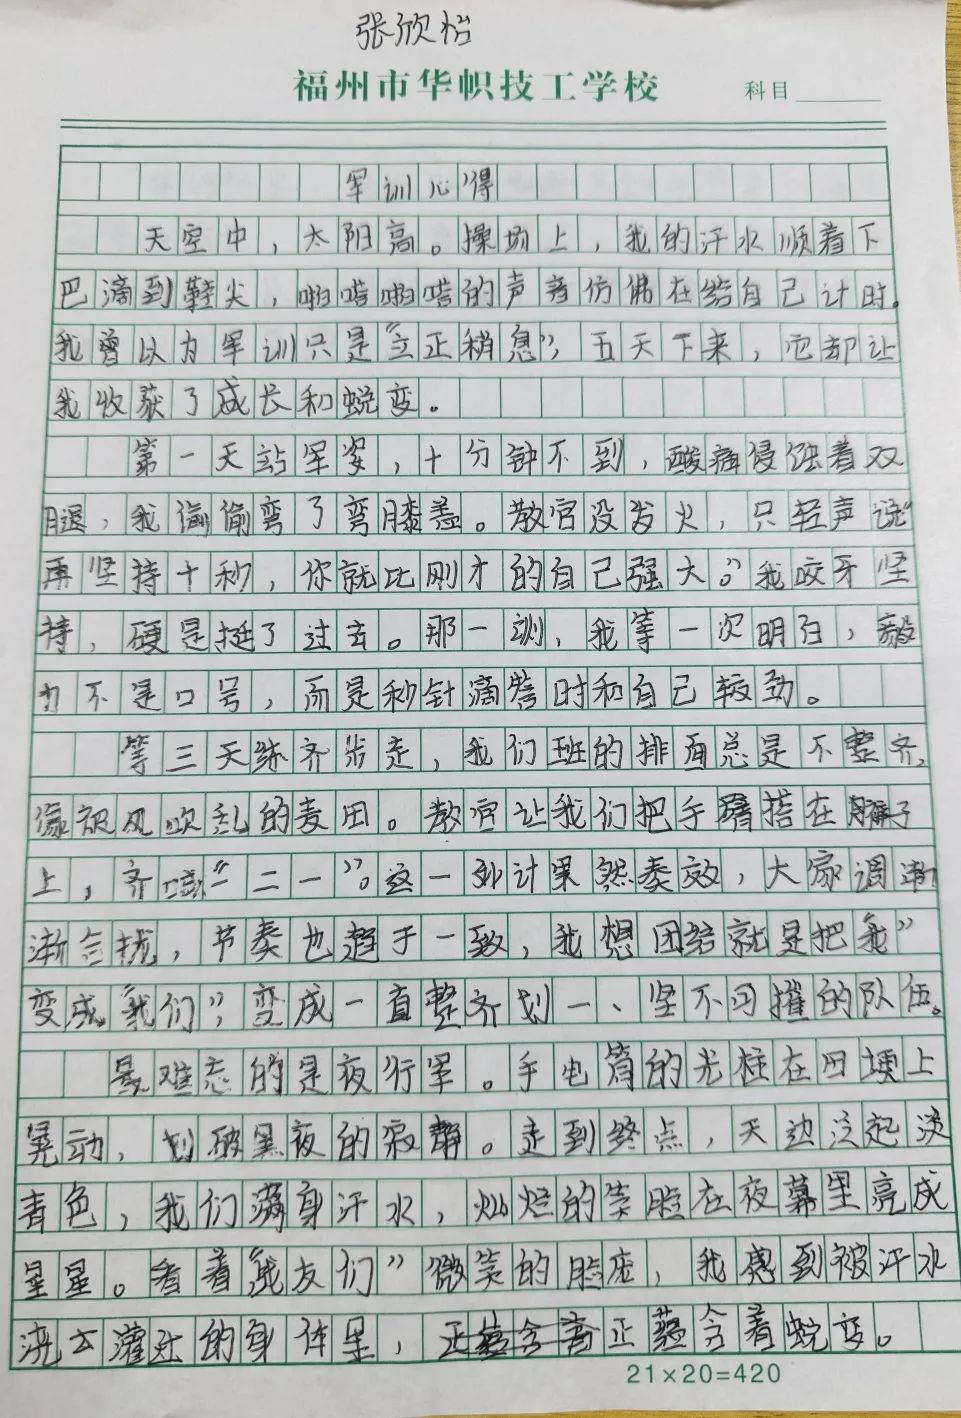 张欣怡
福州市华帜技工学校 科目
军训心得
天空中，太阳高。操场上，我的汗水顺着下
巴滴到鞋尖，啪嗒啪嗒的声音仿佛在给自己计时。
我曾以为军训只是“立正稍息”，五天下来，它却让
我收获了成长和蜕变。
第一天站军姿，十分钟不到，酸痛侵蚀着双
腿，我偷偷弯了弯膝盖。教官没发火，只轻声说“
再坚持十秒，你就比刚才的自己强大。”我咬牙坚
持，硬是挺了过去。那一训，我等一次明白，毅
力不是口号，而是秒针滴答时和自己较劲。
等三天练齐步走，我们班的排面总是不整齐，
像被风吹乱的麦田。教官让我们把手臂搭在脖子
上，齐喊“一二一”。这一妙计果然奏效，大家调渐
渐合拢，节奏也趋于一致，我想团结就是把“我”
变成“我们”，变成一直整齐划一、坚不可摧的队伍。
最难忘的是夜行军。手电筒的光柱在田埂上
晃动，划破黑夜的寂静。走到终点，天边泛起淡
青色，我们满身汗水，灿烂的笑脸在夜幕里亮成
星星。看着“战友们”微笑的脸庞，我感到被汗水
浇灌过的身体里，正蕴含着蜕变。
21×20=420